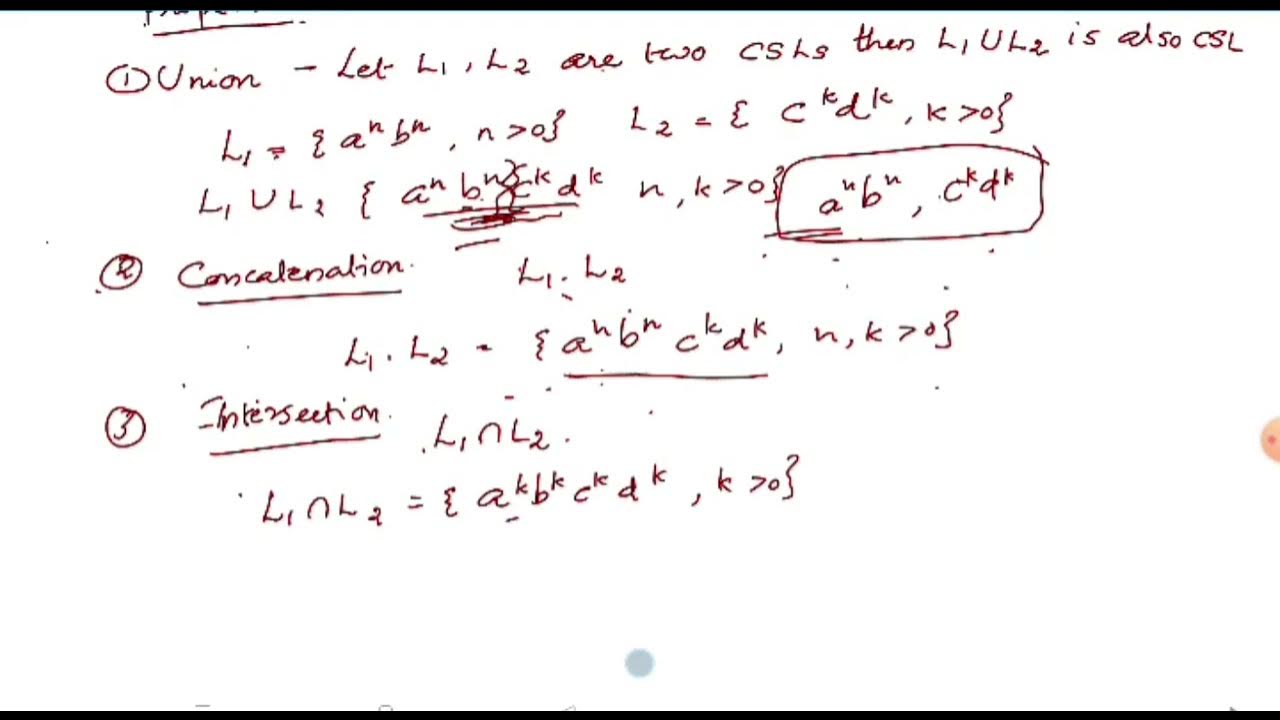 ① Union - Let L₁, L₂ are two CSLs then L₁ ∪ L₂ is also CSL
L₁ = { aⁿbⁿ, n>0} L₂ = { cᵏdᵏ, k>0}
L₁ ∪ L₂ { aⁿ bⁿ} cᵏ dᵏ n, k>0} aⁿbⁿ, cᵏdᵏ
② Concatenation. L₁. L₂
L₁. L₂ = { aⁿbⁿ cᵏdᵏ, n, k>0}
③ Intersection. L₁ ∩ L₂.
L₁ ∩ L₂ = { aᵏbᵏcᵏdᵏ, k>0}